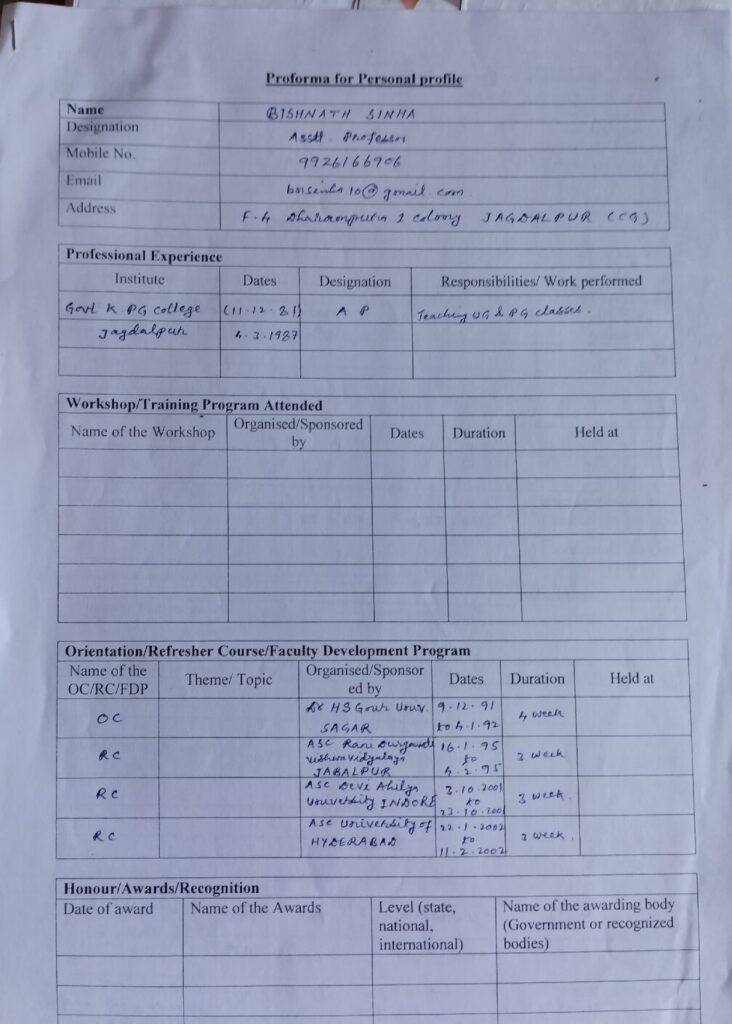 Proforma for Personal profile
Name BISHNATH SINHA
Designation Asstt. Professor
Mobile No. 9926166906
Email @gmail.com
Address F-4 Dharampura 1 colony JAGDALPUR (CG)
Professional Experience
Institute Dates Designation Responsibilities/ Work performed
Govt K. PG College (11.12.81) A P Teaching UG & PG classes.
Jagdalpur 4.3.1987
Workshop/Training Program Attended
Name of the Workshop Organised/Sponsored by Dates Duration Held at
Orientation/Refresher Course/Faculty Development Program
Name of the OC/RC/FDP Theme/ Topic Organised/Sponsor ed by Dates Duration Held at
OC Dr HS Gour Univ. SAGAR 9.12.91 to 4.1.92 4 week
RC ASC Rani Durgavati Vishwavidyalaya JABALPUR 16.1.95 to 4.2.95 3 week
RC ASC Devi Ahilya University INDORE 3.10.2001 to 23.10.2001 3 week.
RC ASC University of HYDERABAD 22.1.2002 to 11.2.2002 3 week.
Honour/Awards/Recognition
Date of award Name of the Awards Level (state, national, international) Name of the awarding body (Government or recognized bodies)